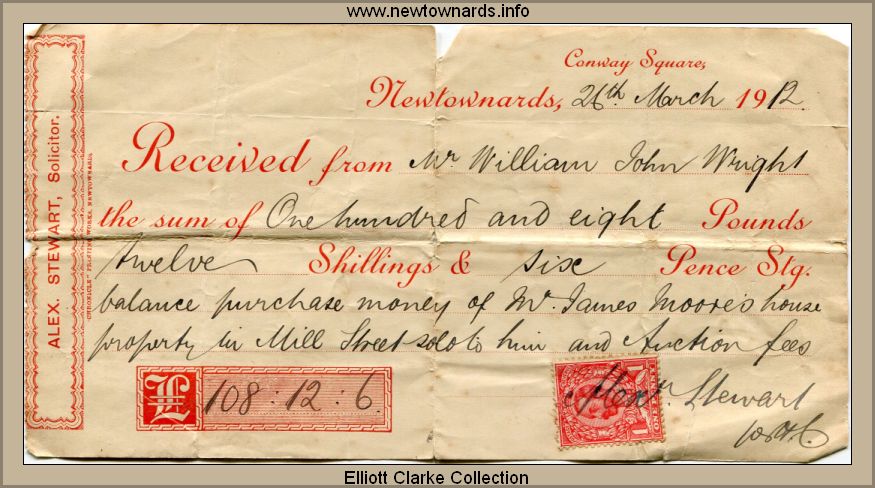 www.newtownards.info
Conway Square,
Newtownards, 26th March 1912
Received from Mr William John Wright
the sum of One hundred and eight Pounds
twelve Shillings & six Pence Stg.
balance purchase money of Mr. James Moore's house
property in Mill Street sold to him and Auction fees
£ 108 : 12 : 6.
Alexr. Stewart
ONE PENNY
ALEX. STEWART, Solicitor.
"CHRONICLE" PRINTING WORKS, NEWTOWNARDS
Elliott Clarke Collection